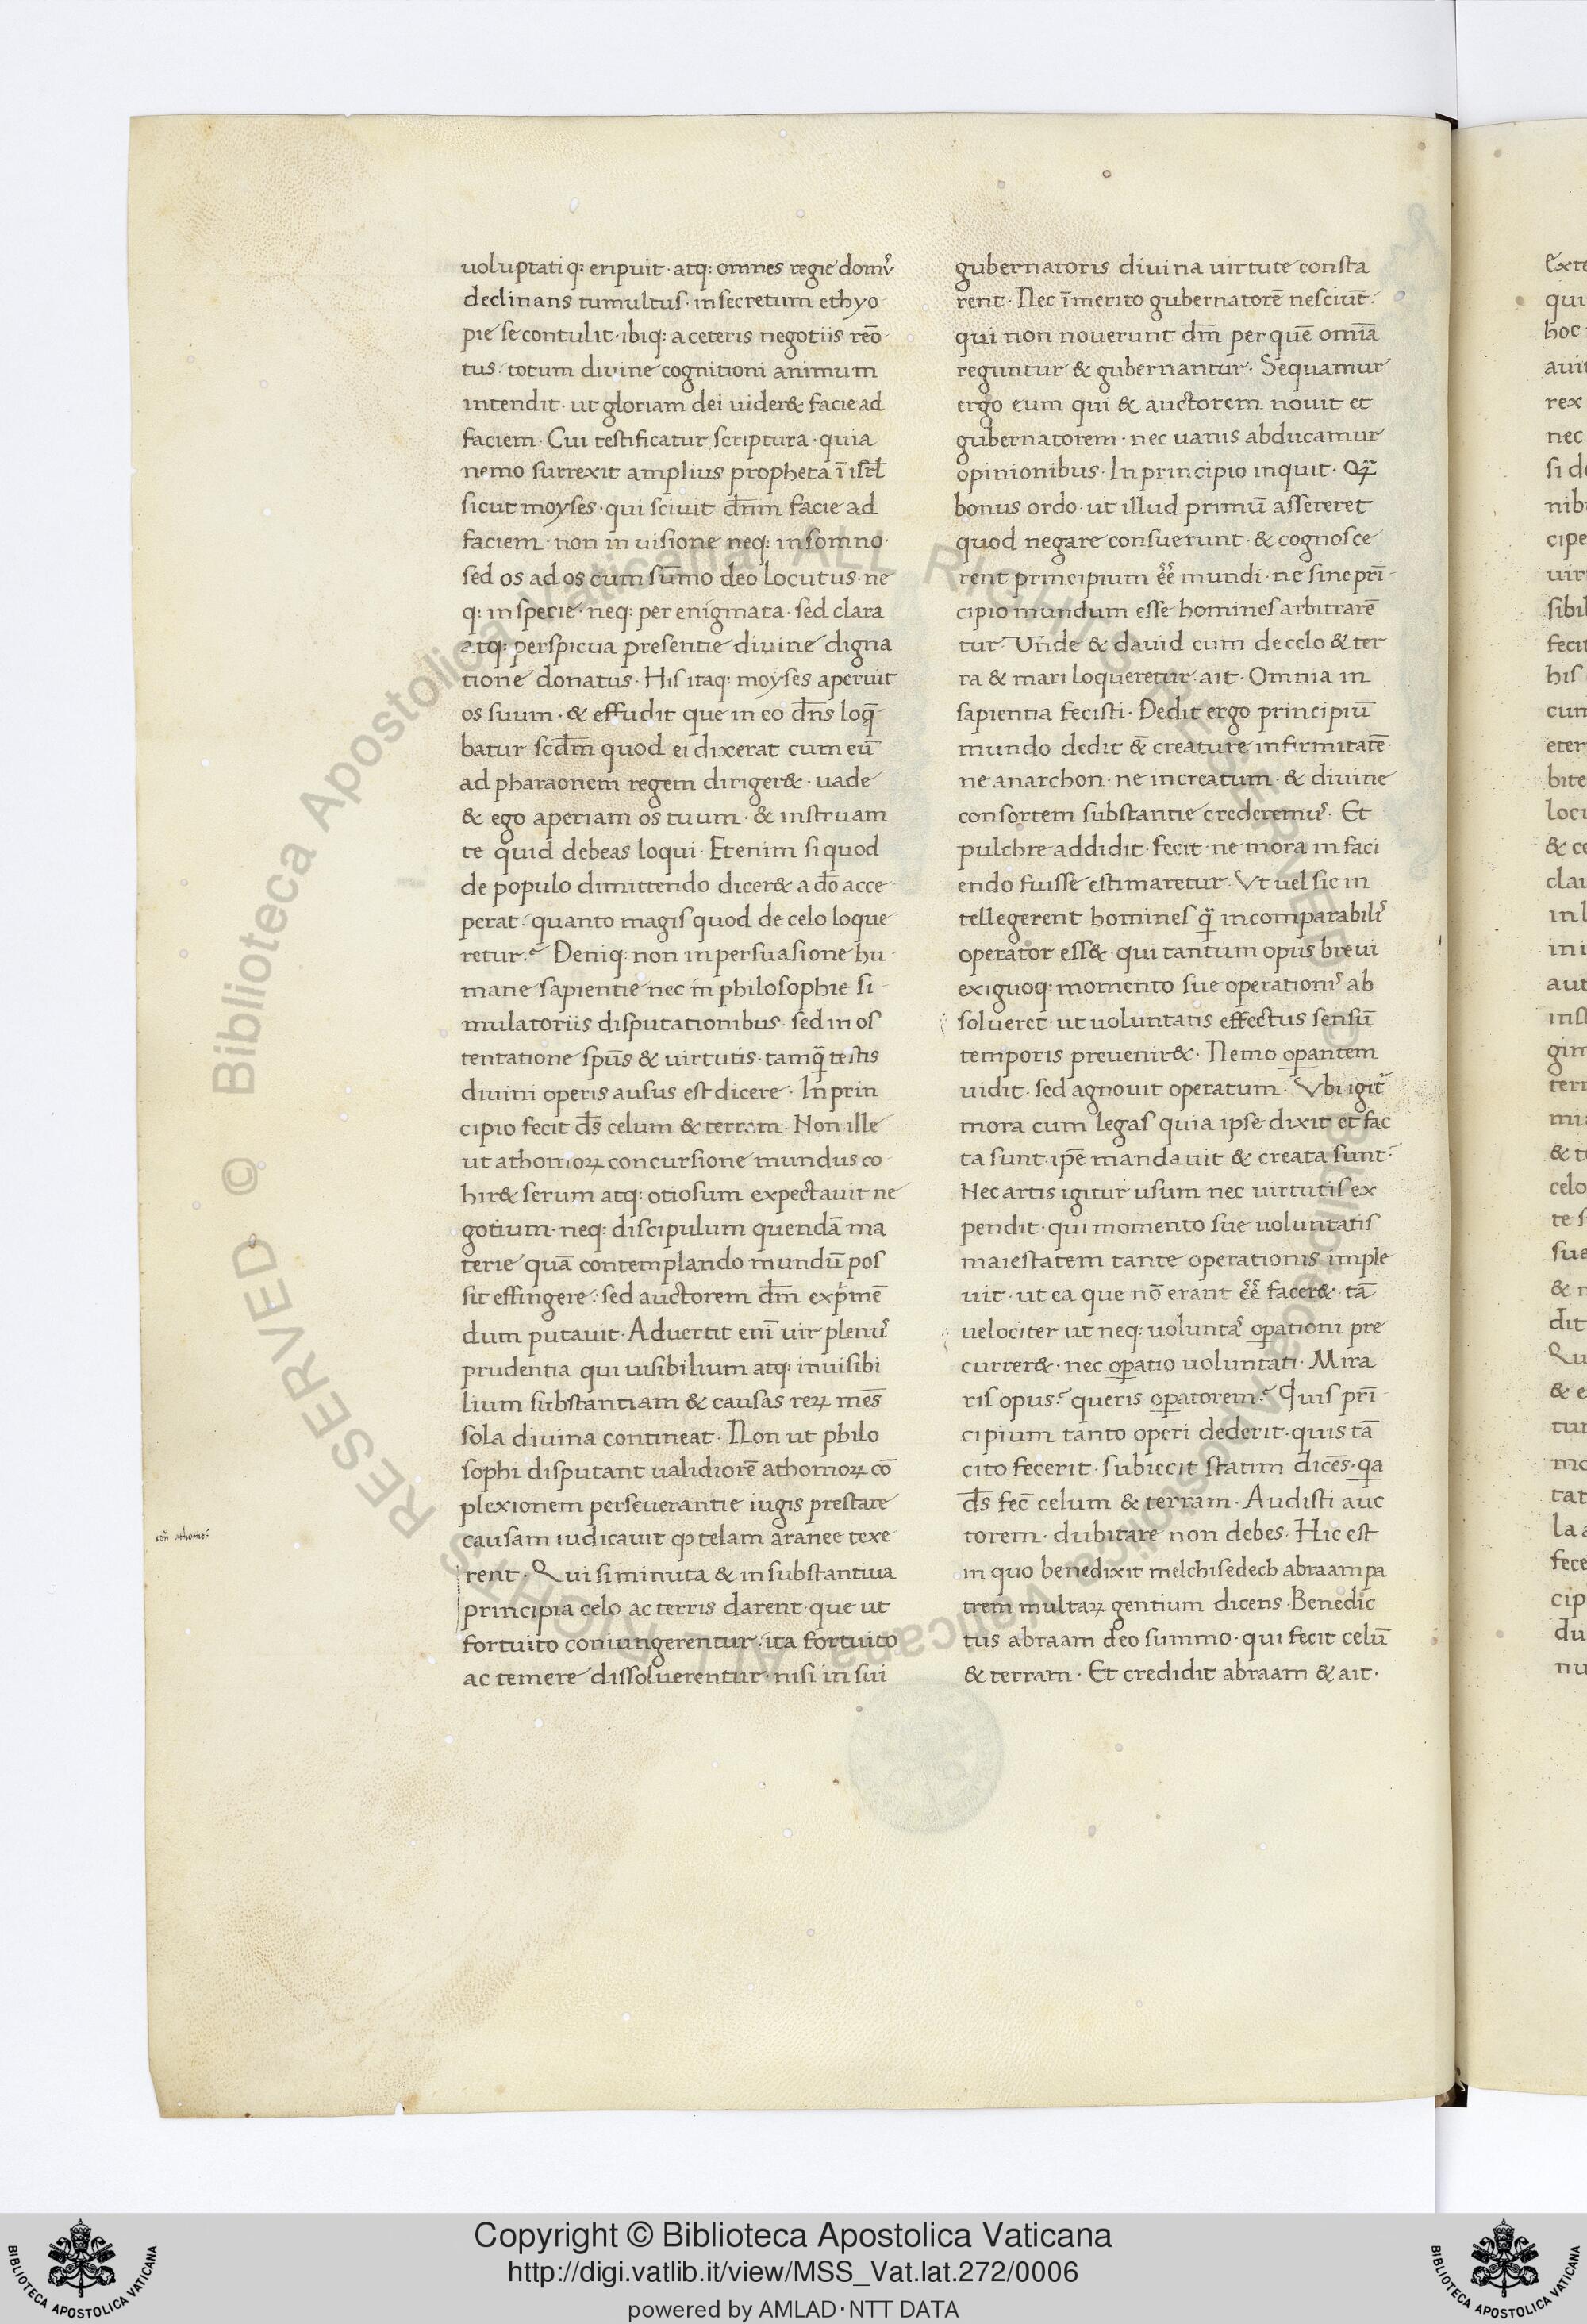 uoluptati q: eripuit · atq: omnes regie domꝰ
declinans tumultus · in secretum ethyo
pie se contulit · ibiq: a ceteris negotiis reõ
tus · totum diuine cognitioni animum
intendit · ut gloriam dei uider& facie ad
faciem · Cui testificatur scriptura · quia
nemo surrexit amplius propheta ī isrł
sicut moyses · qui sciuit dn̄m facie ad
faciem · non in uisione neq: in somno ·
sed os ad os cum sūmo deo locutus · ne
q: in specie · neq: per enigmata · sed clara
atq: perspicua presentie diuine digna
tione donatus · His itaq: moyses aperuit
os suum · & effudit que in eo dn̄s loq̄
batur scd̄m quod ei dixerat cum eū
ad pharaonem regem diriger& · uade
& ego aperiam os tuum · & instruam
te quid debeas loqui · Etenim si quod
de populo dimittendo dicer& a dō acce
perat · quanto magis quod de celo loque
retur? Deniq: non in persuasione hu
mane sapientie nec in philosophie si
mulatoriis disputationibus · sed in os
tentatione sp̄us & uirtutis · tamq̄ testis
diuini operis ausus est dicere · In prin
cipio fecit d̄s celum & terram · Non ille
ut athomoꝝ concursione mundus co
hir& serum atq: otiosum expectauit ne
gotium · neq: discipulum quendā ma
terie quā contemplando mundū pos
sit effingere · sed auctorem dm̄ exp̄mē
dum putauit · Aduertit enī uir plenꝰ
prudentia qui uisibilium atq: inuisibi
lium substantiam & causas reꝝ mēs
sola diuina contineat · Non ut philo
sophi disputant ualidiorē athomoꝝ cō
plexionem perseuerantie iugis prestare
causam iudicauit ꝙ telam aranee texe
rent · Qui si minuta & in substantiua
principia celo ac terris darent · que ut
fortuito coniungerentur · ita fortuito
ac temere dissoluerentur · nisi in sui
gubernatoris diuina uirtute consta
rent · Nec īmerito gubernatorē nesciūt ·
qui non nouerunt dm̄ per quē omīa
reguntur & gubernantur · Sequamur
ergo eum qui & auctorem nouit et
gubernatorem · nec uanis abducamur
opinionibus · In principio inquit · Qꝫ
bonus ordo · ut illud primū assereret
quod negare consuerunt · & cognosce
rent principium ēē mundi · ne sine prī
cipio mundum esse homines arbitrarē
tur · Unde & dauid cum de celo & ter
ra & mari loqueretur ait · Omnia in
sapientia fecisti · Dedit ergo principiū
mundo dedit & creature infirmitatē ·
ne anarchon · ne increatum · & diuine
consortem substantie crederemꝰ · Et
pulchre addidit · fecit · ne mora in faci
endo fuisse estimaretur · Vt uel sic in
tellegerent homines q̄ incomparabilis
operator ess& · qui tantum opus breui
exiguoq: momento sue operationis ab
solueret · ut uoluntatis effectus sensū
temporis preuenir& · Nemo oꝑantem
uidit · sed agnouit operatum · Vbi igit᷑
mora cum legas quia ipse dixit et fac
ta sunt · ip̄e mandauit & creata sunt?
Nec artis igitur usum nec uirtutis ex
pendit · qui momento sue uoluntatis
maiestatem tante operationis imple
uit · ut ea que nō erant ēē facer& · tā
uelociter ut neq: uoluntas oꝑationi pre
currer& · nec oꝑatio uoluntati · Mira
ris opus? queris oꝑatorem? Quis prī
cipium tanto operi dederit · quis tā
cito fecerit · subiecit statim dicēs · qa
d̄s fec̄ celum & terram · Audisti auc
torem · dubitare non debes · Hic est
in quo benedixit melchisedech abraam pa
trem multaꝝ gentium dicens · Benedic
tus abraam deo summo · qui fecit celū
& terram · Et credidit abraam & ait ·
Copyright © Biblioteca Apostolica Vaticana
http://digi.vatlib.it/view/MSS_Vat.lat.272/0006
powered by AMLAD·NTT DATA
BIBLIOTECA APOSTOLICA VATICANA
BIBLIOTECA APOSTOLICA VATICANA